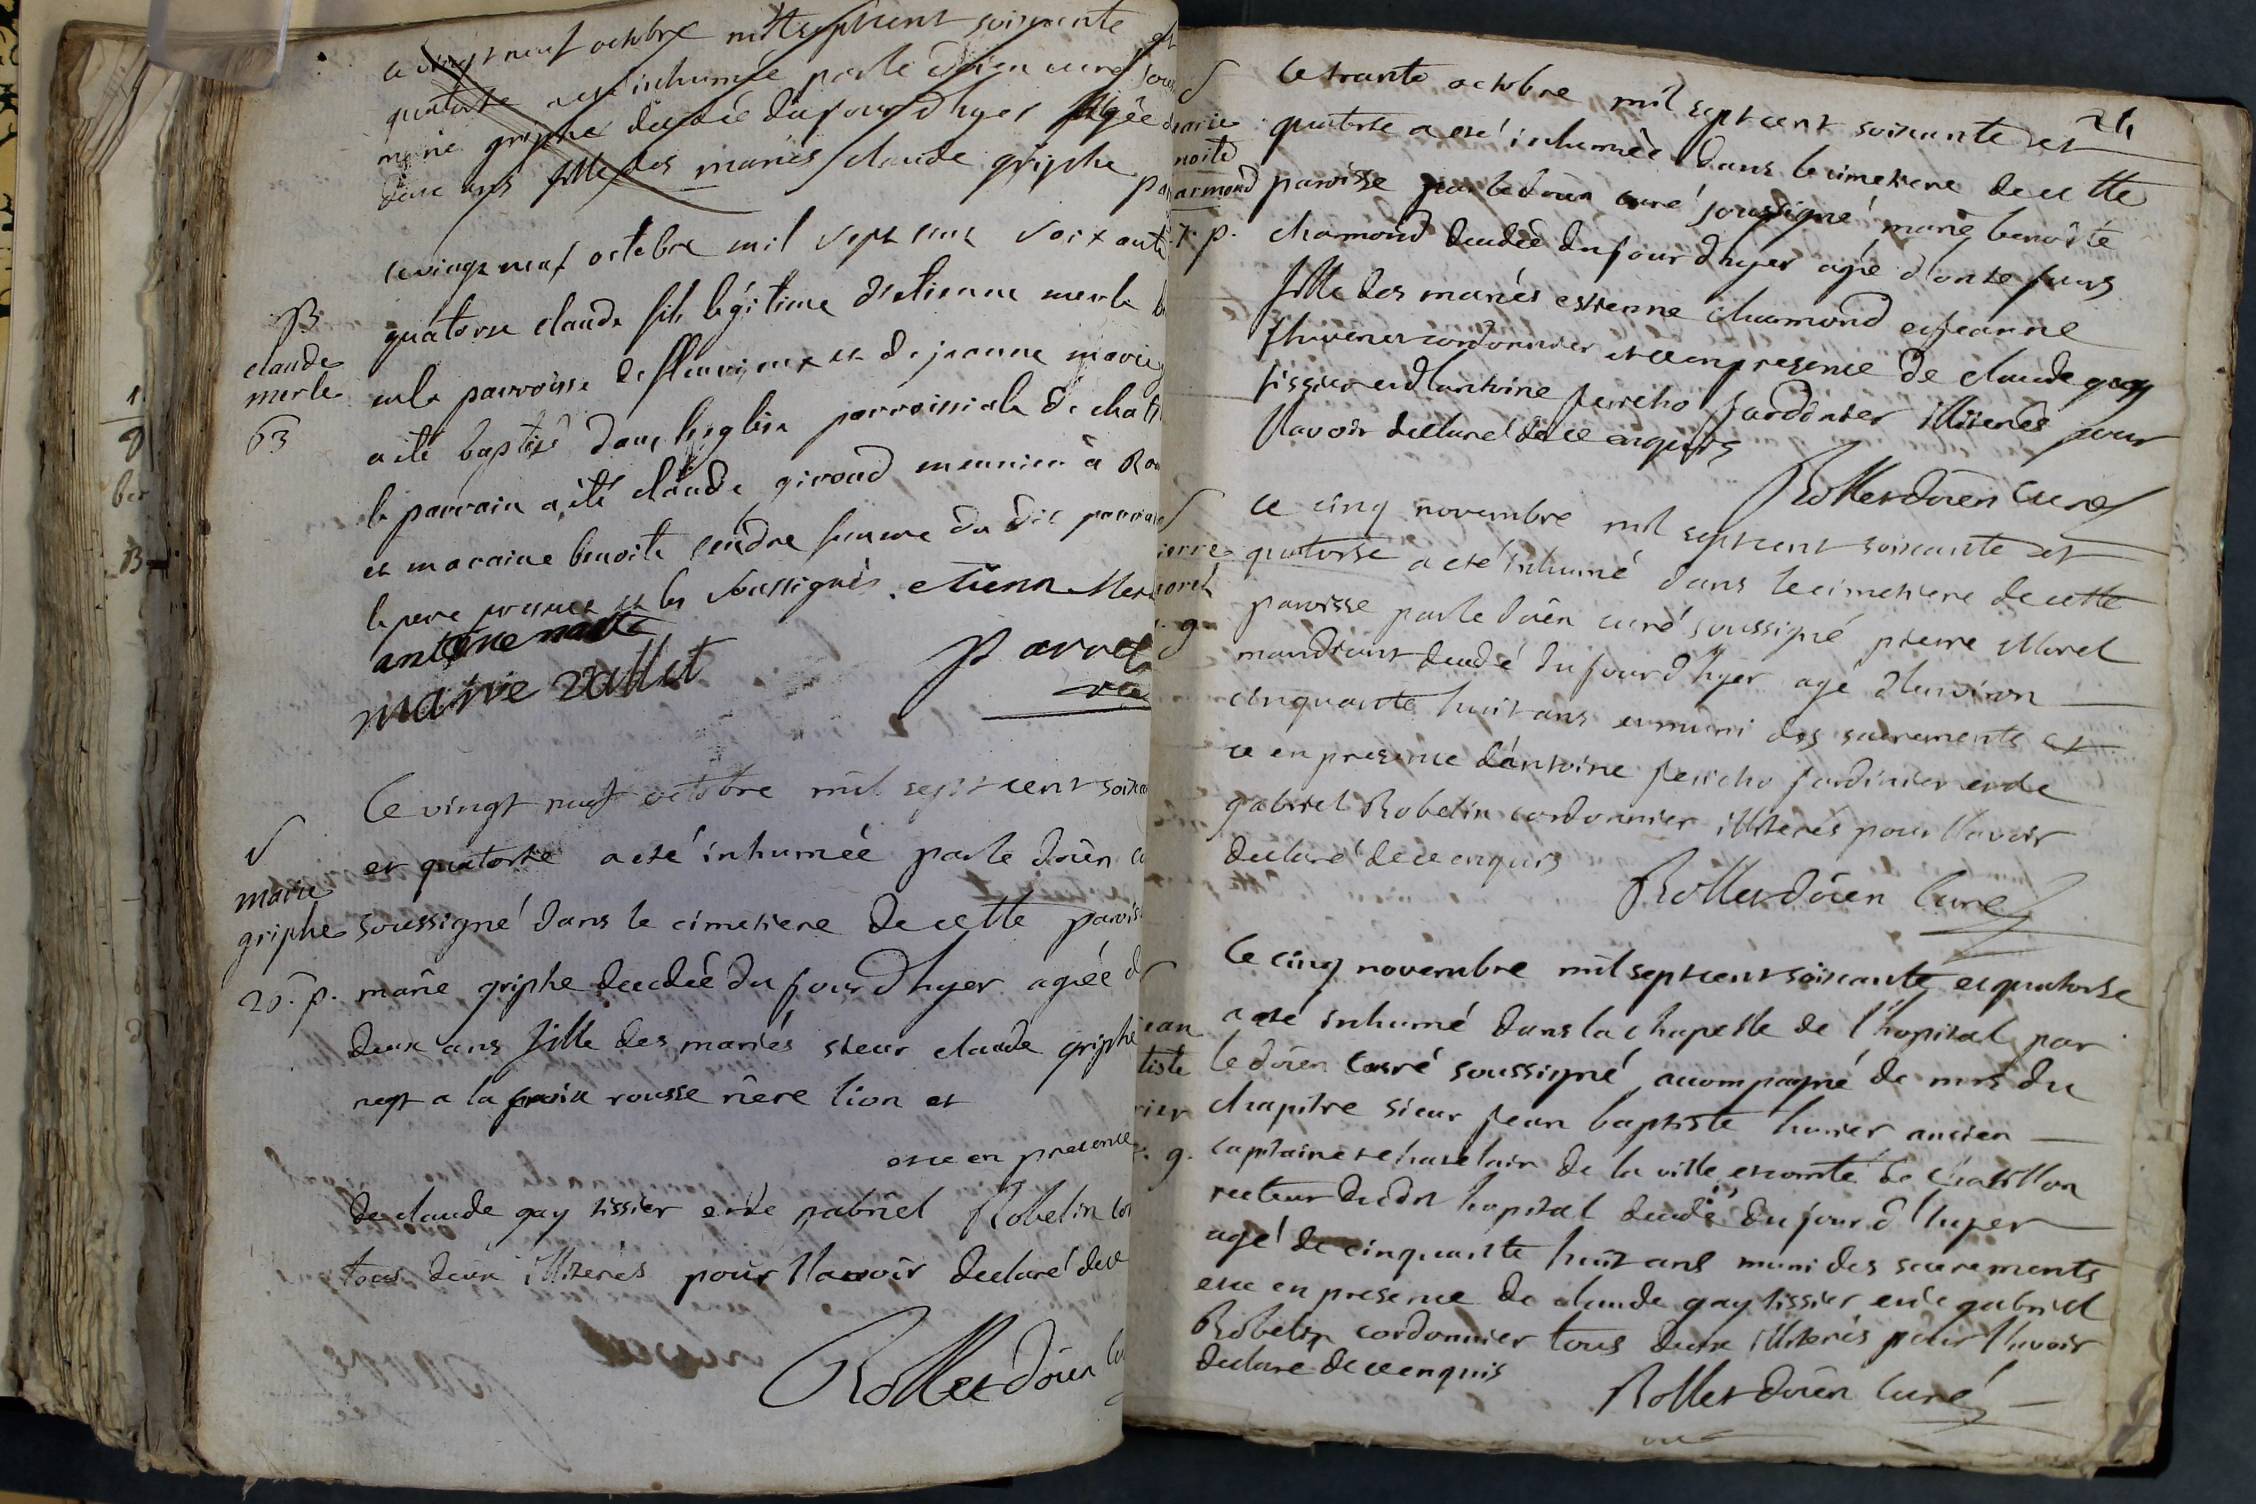 ce vingt neuf octobre mil sept cent soixante et
quatorse a eté inhumée par le doïen curé sous
marie griphe decedée du jour d hyer agée d
deux ans fille des mariés claude griphe
S
B
claude
merle
63
ce vingt neuf octobre mil sept cent soixante
quatorze claude fils légitime d'etienne merle
en la parroisse de fleurieux et de jeanne marie
a été baptisé dans l'eglise parroissiale de chat
le parrain a été claude giroud meunier à
et maraine benoite cendre femme du dit parrain
le pere present et les soussignés. etienn Merle
antoine
marie vallet
S
marie
griphe
20. p.
Le vingt neuf octobre mil sept cent soixa
et quatorse a eté inhumée par le doïen c
soussigné dans le cimetiere de cette parois
marie griphe decedée du jour d hyer agée d
deux ans fille des mariés sieur claude griphe
negt a la croix rousse rière lion et
et ce en presence
de claude gay tissier et de gabriel Robelin cor
tous deux illiterés pour l'avoir declaré de ce
Rollet doïen cu
24
S
marie
noite
armond
7. p.
Ce trante octobre mil sept cent soixante et
quatorse a eté inhumée dans le cimetiere de cette
paroisse par le doïen curé soussigné marie benoite
chamond decedée du jour d hyer agé d'onze jours
fille des mariés estienne chamond et jeanne
thevenet cordonnier et ce en presence de claude gay
tissier et d'antoine jericho jardinier illiterés pour
l'avoir declaré de ce enquis
Rollet doïen curé
S
ierre
orel
g.
Ce cinq novembre mil sept cent soixante et
quatorse a eté inhumé dans le cimetiere de cette
paroisse par le doïen curé soussigné pierre Morel
mandiant decedé du jour d hyer agé d'environ
cinquante huit ans et muni des sacrements et
ce en presence d'antoine jericho jardinier et de
gabriel Robelin cordonnier illiterés pour l'avoir
declaré de ce enquis
Rollet doïen Curé
S
ean
tiste
rier
g.
Ce cinq novembre mil sept cent soixante et quatorse
a eté inhumé dans la chapelle de l'hopital par
le doïen curé soussigné accompagné de mrs du
chapitre sieur jean baptiste ancien
capitaine et chatelain de la ville et comté de Chatillon
recteur dudit hopital decedé du jour d'hyer
agé de cinquante huit ans muni des sacrements
et ce en presence de claude gay tissier et de gabriel
Robelin cordonnier tous deux illiterés pour l'avoir
declare de ce enquis
Rollet doïen Curé